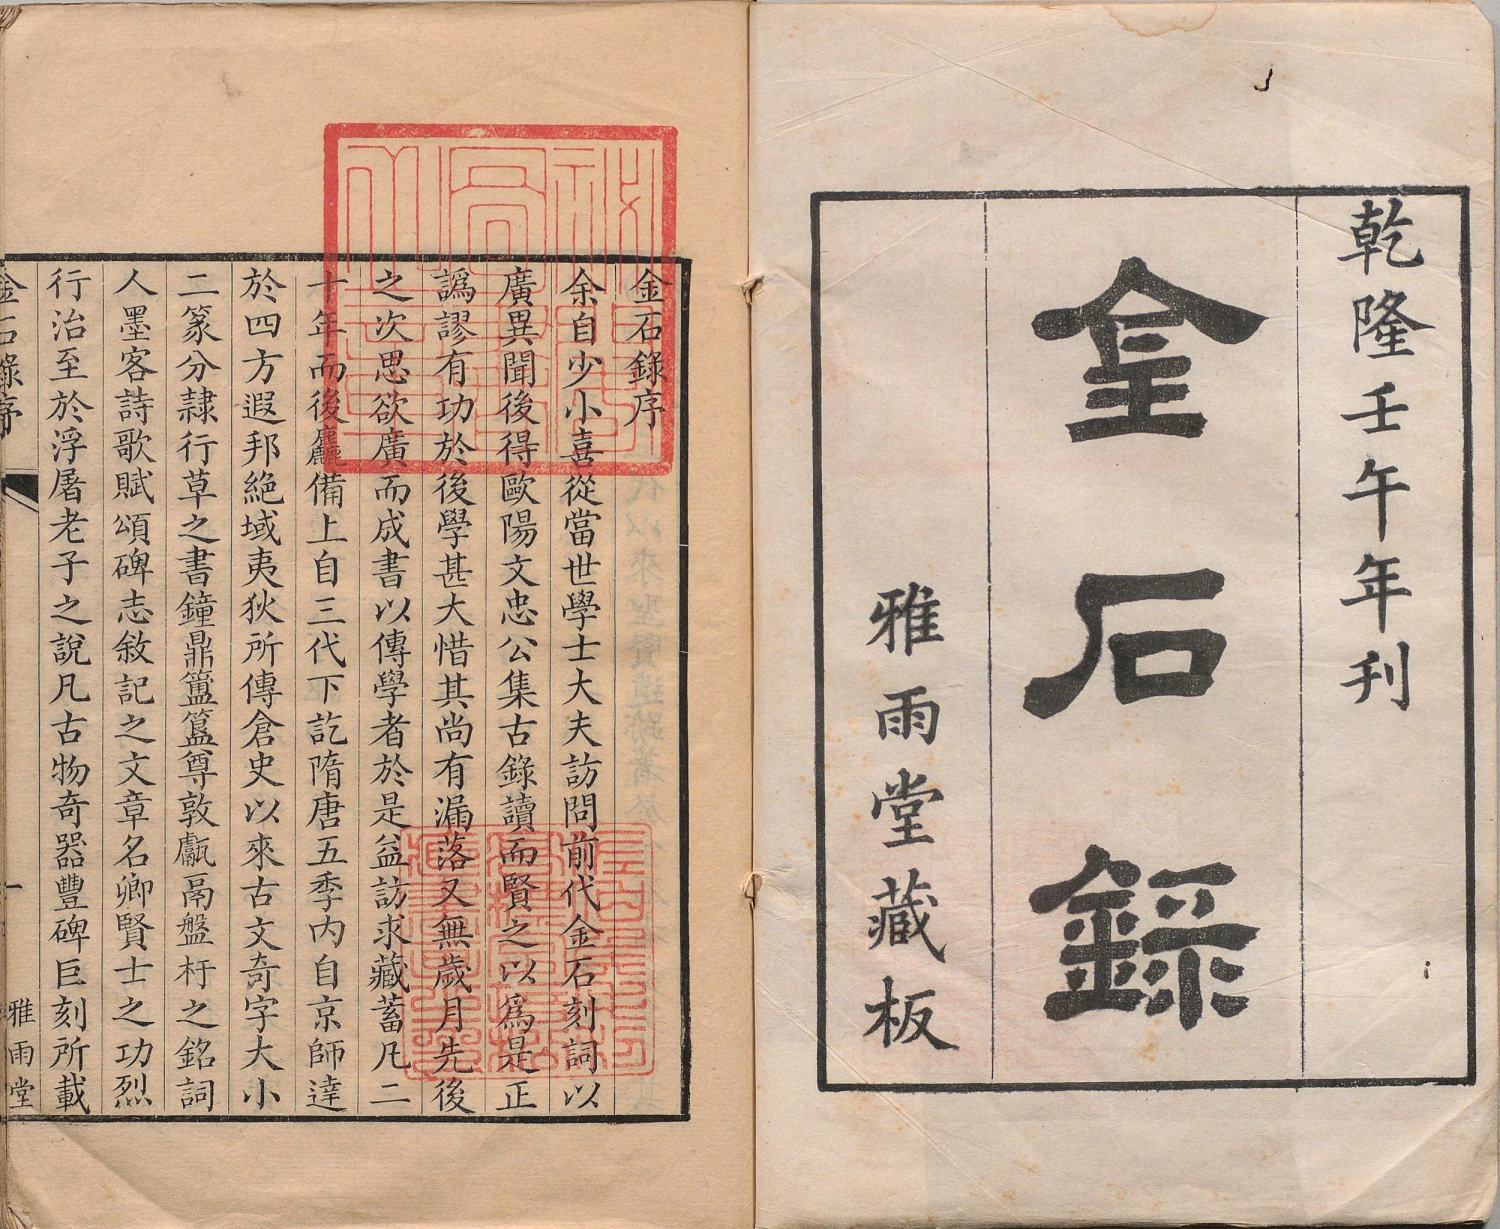 乾隆壬午年刊
金石錄
雅雨堂藏板
金石錄序
余自少小喜從當世學士大夫訪問前代金石刻詞以
廣異聞後得歐陽文忠公集古錄讀而賢之以爲是正
譌謬有功於後學甚大惜其尚有漏落又無歲月先後
之次思欲廣而成書以傳學者於是益訪求藏蓄凡二
十年而後麤備上自三代下訖隋唐五季内自京師達
於四方遐邦絶域夷狄所傳倉史以來古文奇字大小
二篆分隷行草之書鐘鼎簠簋尊敦甗鬲盤杅之銘詞
人墨客詩歌賦頌碑志敘記之文章名卿賢士之功烈
行治至於浮屠老子之說凡古物奇器豐碑巨刻所載
金石錄序
一
雅雨堂